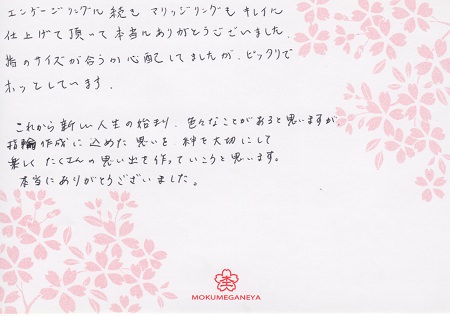 エンゲージリングに続き マリッジリングも キレイに
仕上げて頂いて本当にありがとうございました。
指のサイズが合うか心配してましたが、ピッタリで
ホッとしています。
これから新しい人生の始まり、色々なことがあると思いますが
指輪作成に込めた思いを、絆を大切にして
楽しく たくさんの思い出を作っていこうと思います。
本当にありがとうございました。
MOKUMEGANEYA